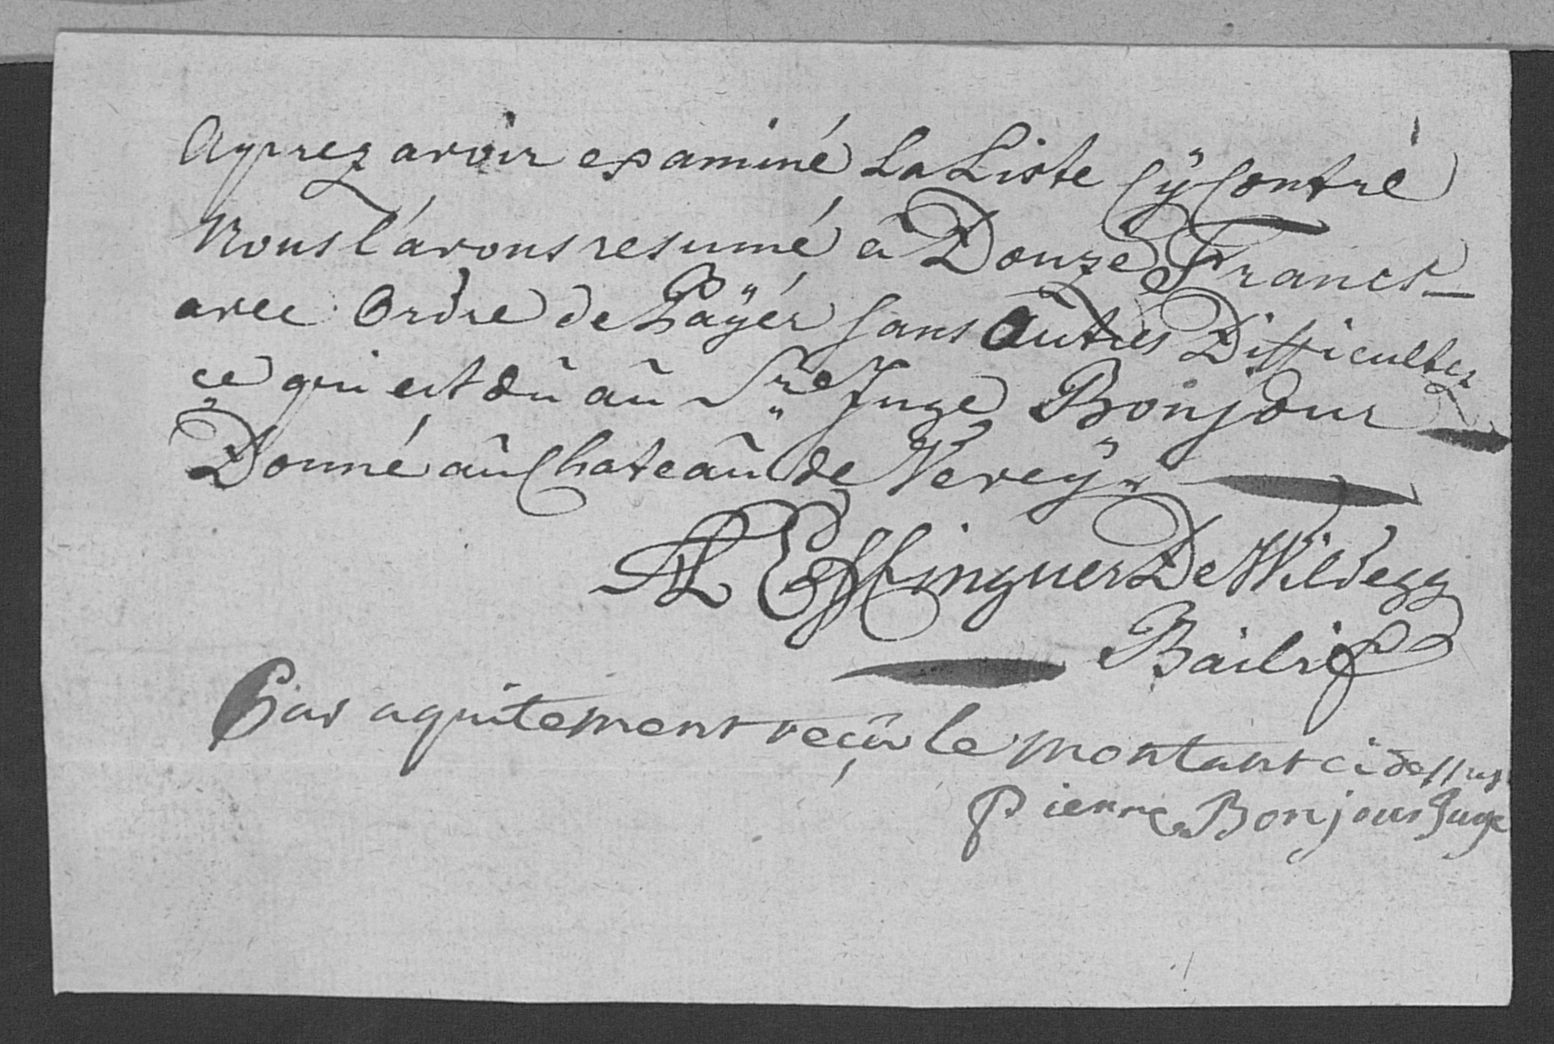 Apprez avoir examiné La Liste Cÿ Contre
Nous l'avons resumé â Douze Francs
avec Ordre de Païjer sans Autres Difficultez
ce qui est dû aû Sre Juge Bonjour
Donné aû Chateaû de Vevey
Effinguer De Wildegg
Bailif
Par aquitement reçû le montant ci dessus
Pierre Bonjour Juge